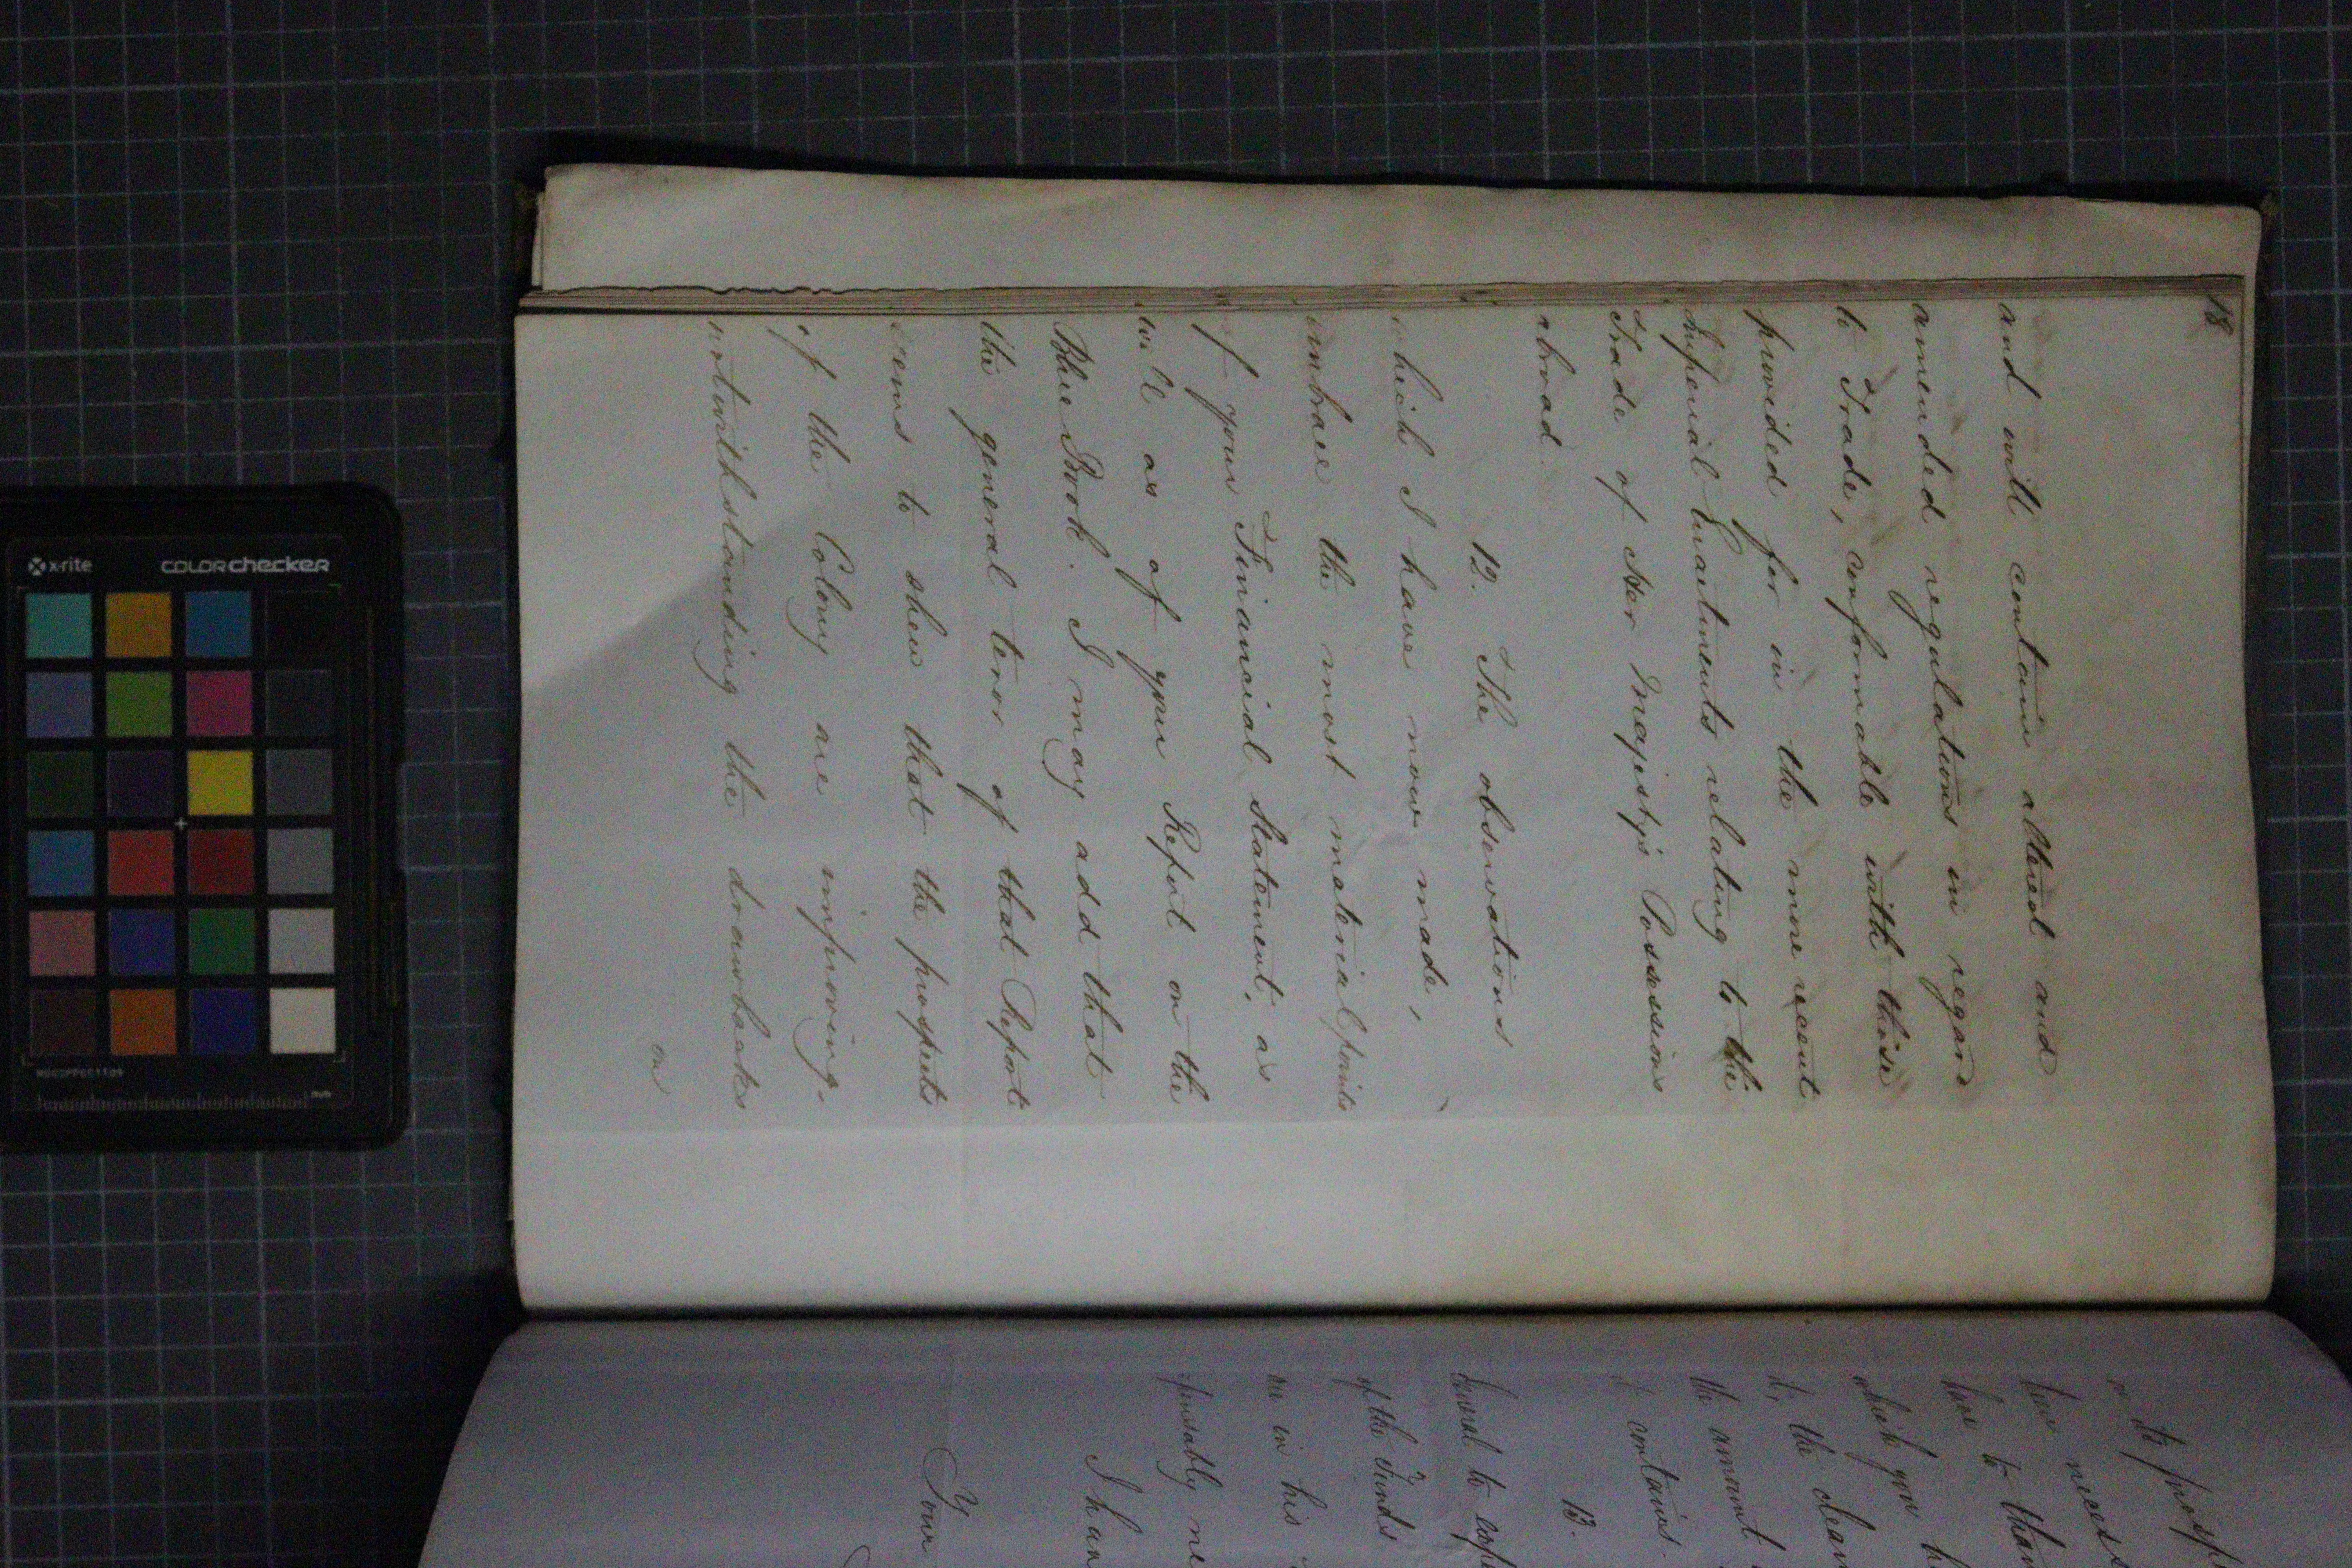 18
and will contain altered and
amended regulations in regard
to Trade, conformable with those
provided for in the more recent
Imperial Enactments relating to the
Trade of Her Majesty's Possessions
abroad.
12. The observations
which I have now made,
embrace the most material points
of your Financial Statement, as
well as of your Report on the
Blue Book. I may add that
the general tenor of that Report
seems to shew that the prospects
of the Colony are improving,
notwithstanding the drawbacks
on
to
been neces
have to than
which you h
the clear
the amount
contains.
13.
General to
of the Funds
me in his
ne
I han
Your
x-rite
colorchecker
mm